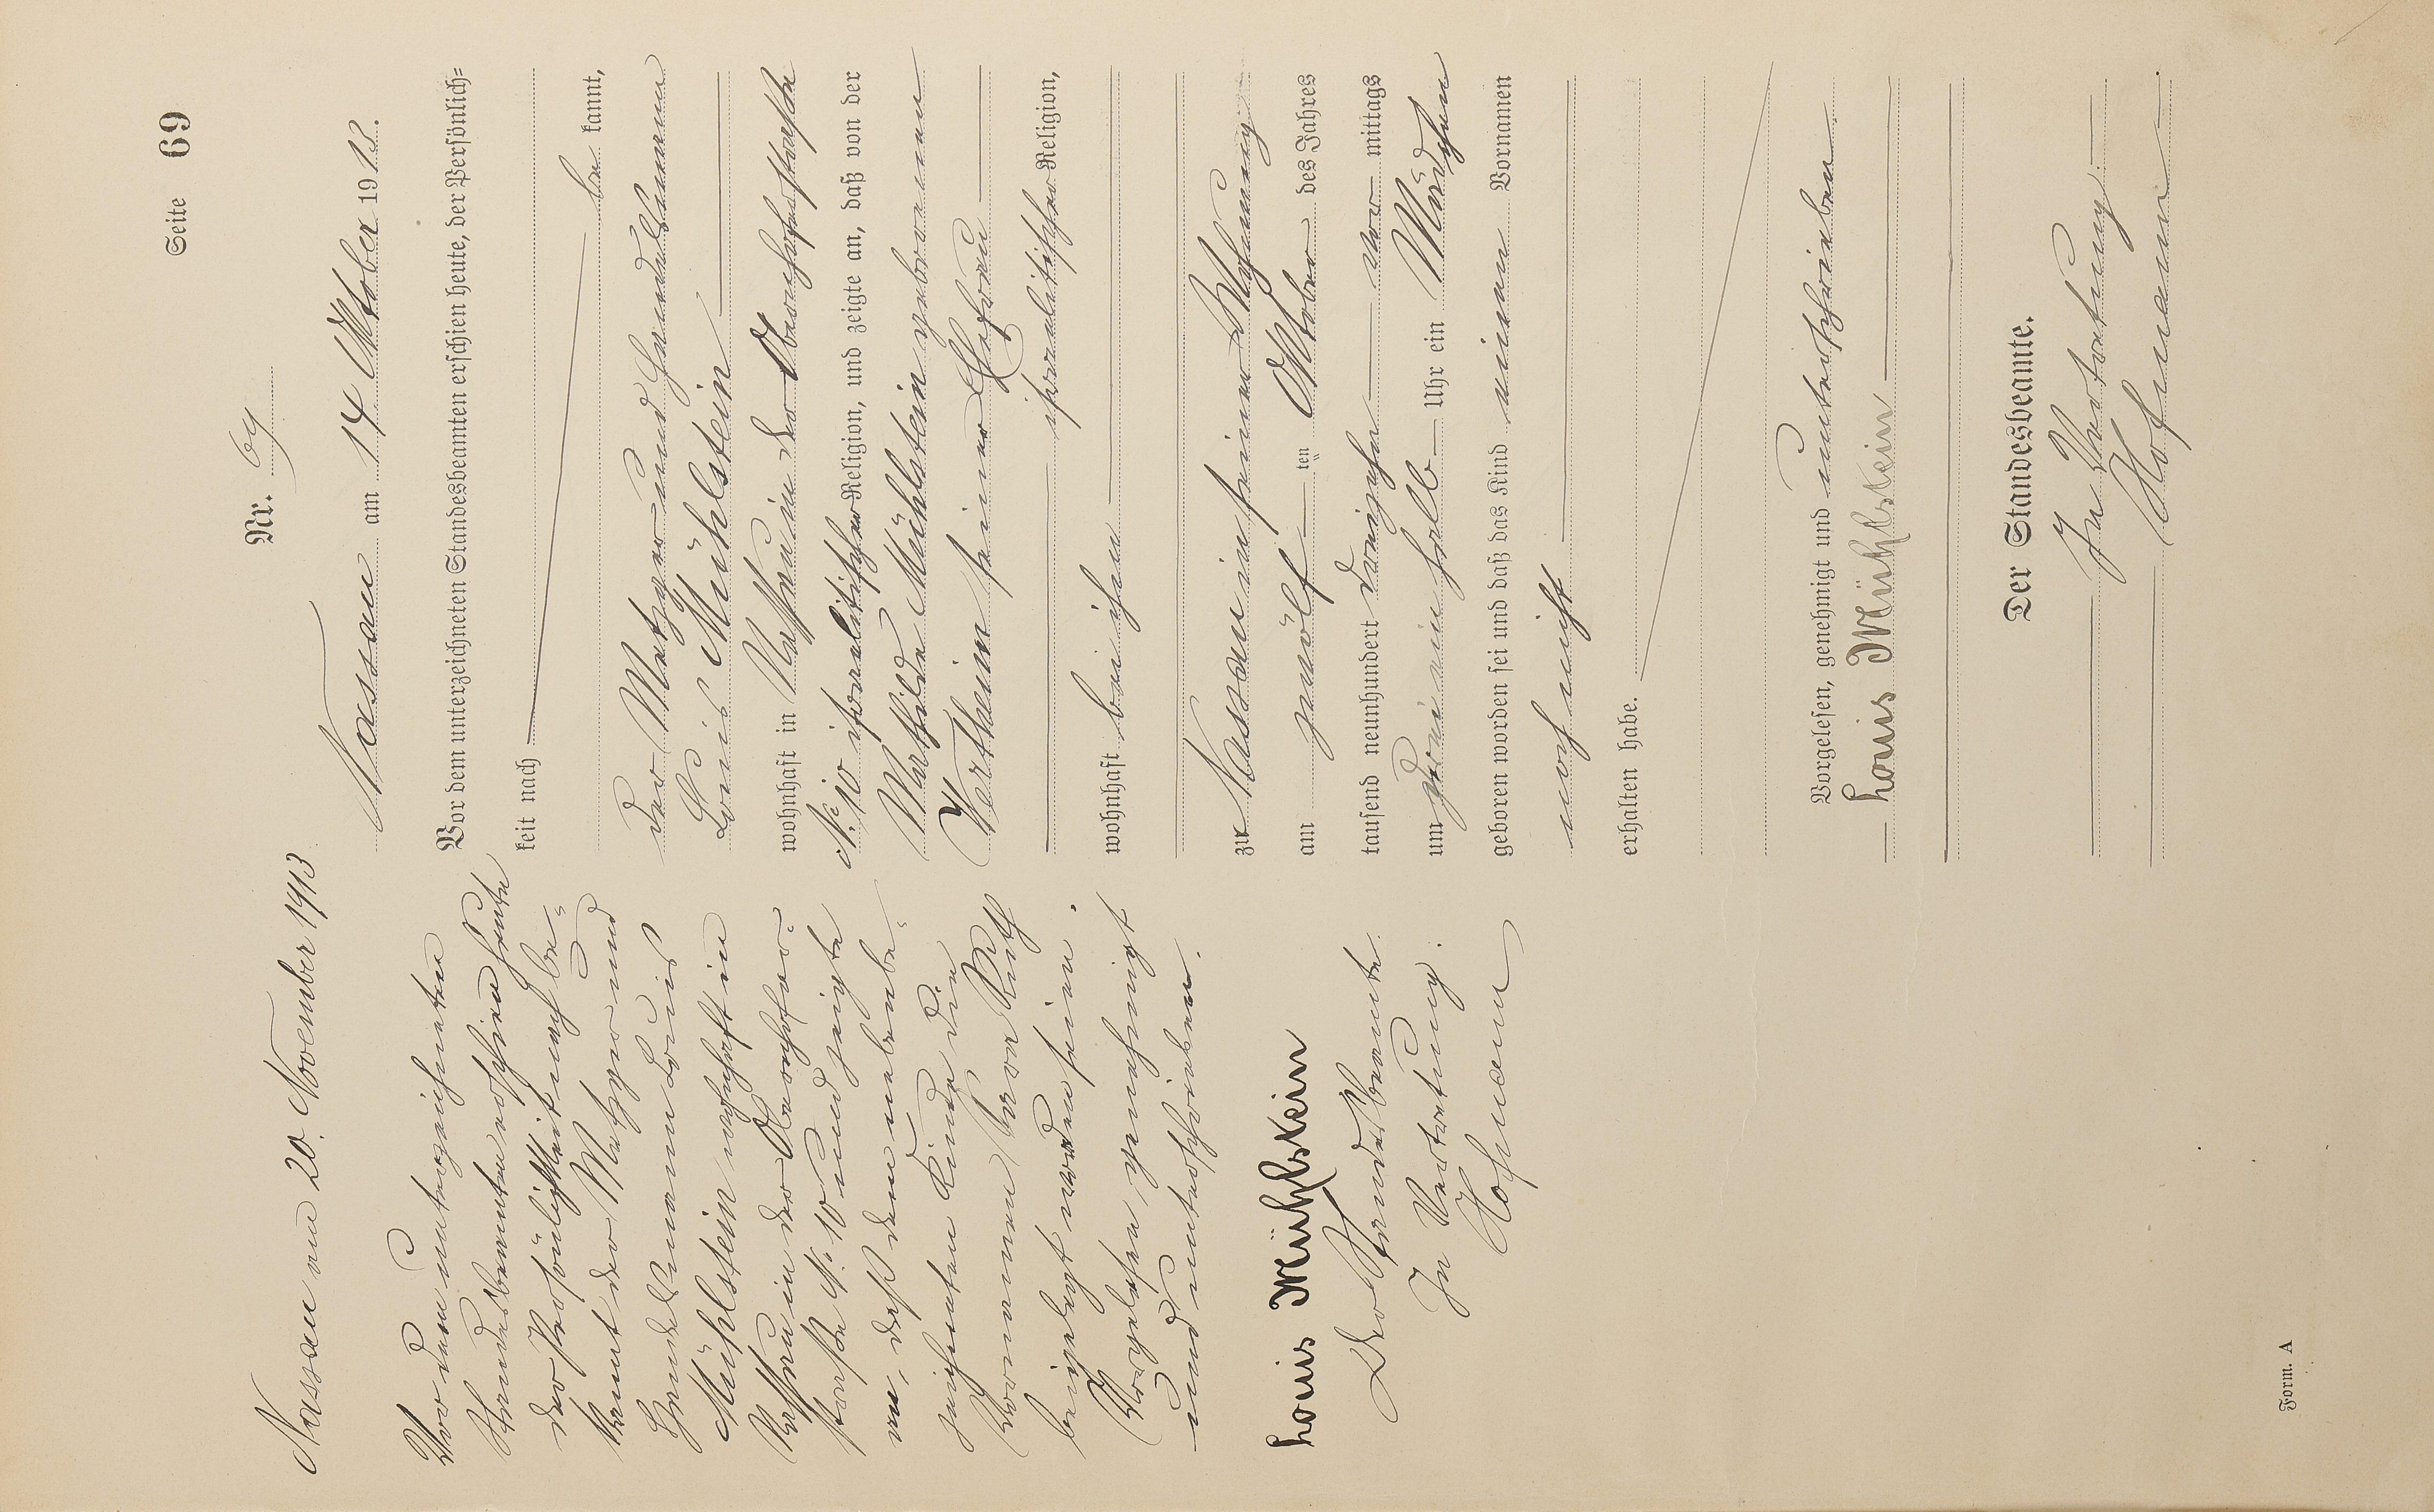 Seite 69
Nr. 69
Nassau am 14 Oktober 1913.
Vor dem unterzeichneten Standesbeamten erschien heute, der Persönlich=
keit nach
be kannt,
der Metzger und Handelsmann
Louis Mühlstein
wohnhaft in Nassau in der Oberhoferstraße
No. 10 israelitischer Religion, und zeigte an, daß von der
Mathilde Mühlstein geborenen
Wertheim seiner Ehefrau
israelitischer Religion,
wohnhaft bei ihm
zu Nassau in seiner Wohnung
am zwölf ten Oktober des Jahres
tausend neunhundert dreizehn vor mittags
um zwei ein halb Uhr ein Mädchen
geboren worden sei und daß das Kind einen Vornamen
noch nicht
erhalten habe.
Vorgelesen, genehmigt und unterschrieben
Louis Mühlstein
Der Standesbeamte.
In Vertretung.
Hofmann
Nassau am 20. November 1913
Vor dem unterzeichneten
Standesbeamten erschien heute
der Persönlichkeit nach be=
kannt der Metzger und
Handelsmann Louis
Mühlstein wohnhaft in
Nassau in der Oberhofer=
straße No. 10 und zeigte
an, daß dem nebenbe=
zeichneten Kinde die
Vornamen Ruth
beigelegt worden seien.
Vorgelesen, genehmigt
und unterschrieben.
Louis Mühlstein
Der Standesbeamte.
In Vertretung.
Hofmann
Form. A